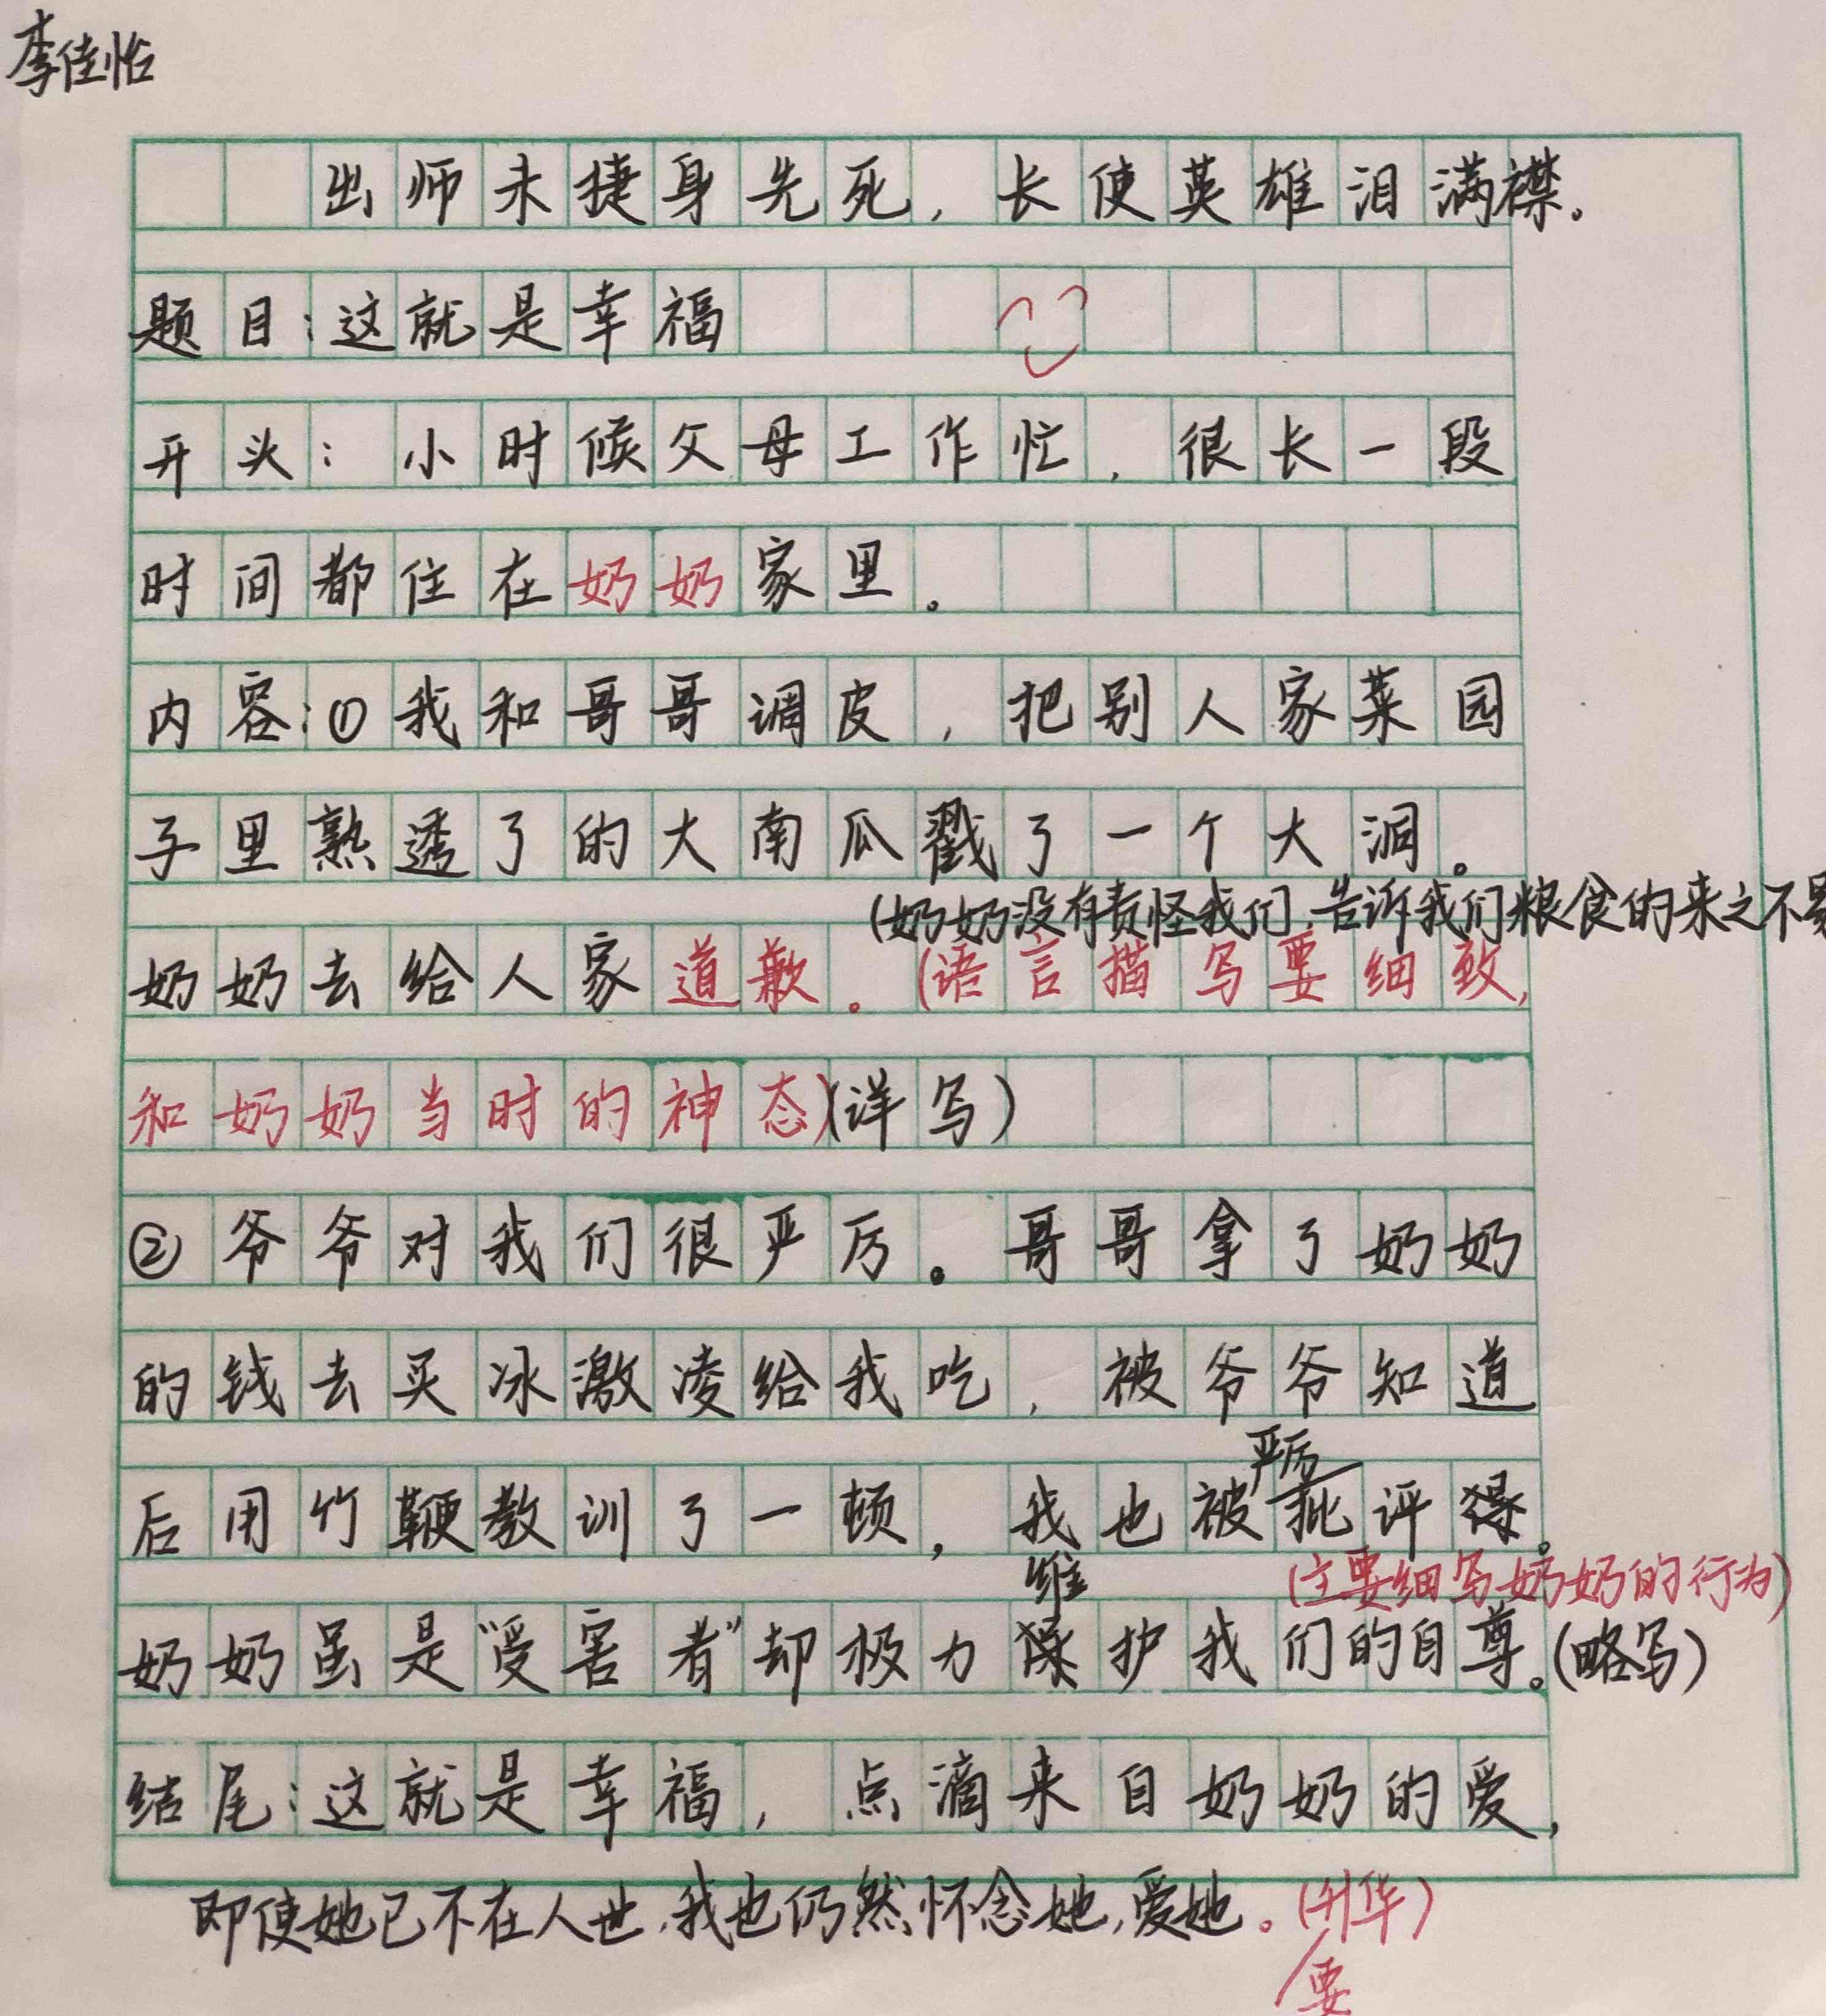 李佳怡
出师未捷身先死，长使英雄泪满襟。
题目：这就是幸福
开头：小时候父母工作忙，很长一段
时间都住在奶奶家里。
内容：①我和哥哥调皮，把别人家菜园
子里熟透了的大南瓜戳了一个大洞。
(奶奶没有责怪我们，告诉我们粮食的来之不易
奶奶去给人家道歉。(语言描写要细致，
和奶奶当时的神态)(详写)
②爷爷对我们很严厉。哥哥拿了奶奶
的钱去买冰激凌给我吃，被爷爷知道
后用竹鞭教训了一顿，我也被严厉批评。
(主要细写奶奶的行为)
奶奶虽是"受害者"却极力维护我们的自尊。(略写)
结尾：这就是幸福，点滴来自奶奶的爱，
即使她已不在人世，我也仍然怀念她，爱她。(升华)
要